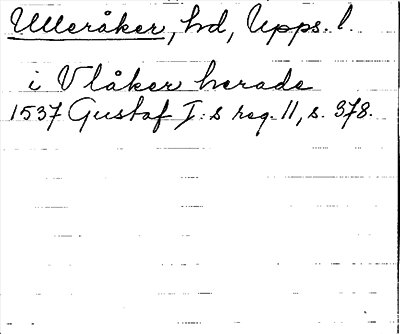 Ulleråker, hd, Upps. l.
i Vlåker herade
1537 Gustaf I:s reg. 11, s. 378.